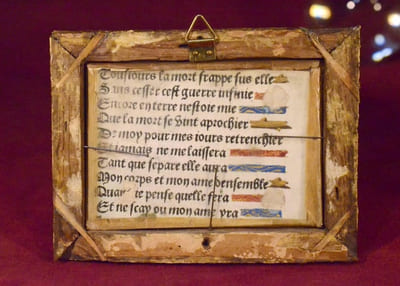 Tousiours la mort frappe sus elle
Sans cesser cest guerre infinie
Encore en terre nestoit mie
Que la mort se vint aprochier
De moy pour mes iours retrenchier
Et iamais ne me laissera
Tant que separe elle aura
Mon corps et mon ame densemble
Quant ie pense quelle fera
Et ne scay ou mon ame yra